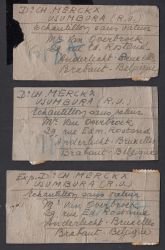 D: CH. MERCKX
USUMBURA (R.U.)
Echantillon sans valeur
Mr Van Overbroek
29 rue Ed. Rostand
Anderlecht - Bruxelles
Brabant - Belgique
D: CH. MERCKX
USUMBURA (R.U.)
Echantillon sans valeur
Mr Van Overbroek
29, rue Edm. Rostand
Anderlecht - Bruxelles
Brabant - Belgique
Exp. D: CH. MERCKX
USUMBURA (R.U.)
Echantillon sans valeur
Mr Van Overbroek
29, rue Ed. Rostand
Anderlecht - Bruxelles
Brabant - Belgique